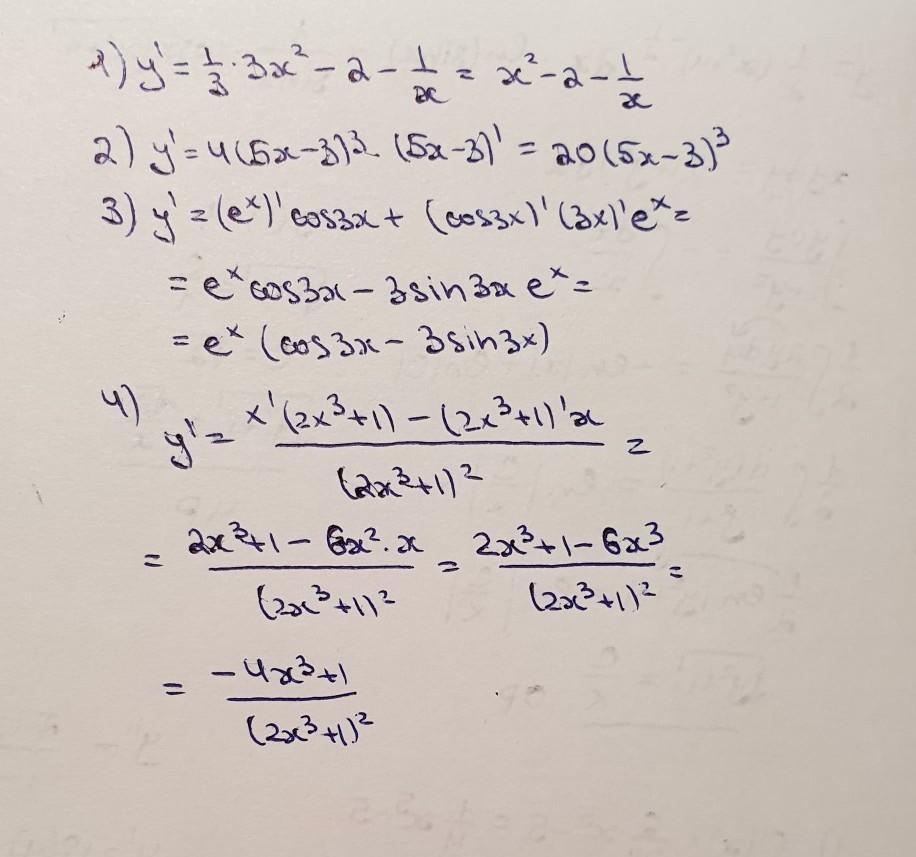 1) y' = 1/3 · 3x² - 2 - 1/x = x² - 2 - 1/x
2) y' = 4(5x-3)³ · (5x-3)' = 20(5x-3)³
3) y' = (eˣ)' cos3x + (cos3x)' (3x)' eˣ =
= eˣ cos3x - 3sin3x eˣ =
= eˣ (cos3x - 3sin3x)
4) y' = (x'(2x³+1) - (2x³+1)'x)/(2x³+1)² =
= (2x³+1 - 6x²·x)/(2x³+1)² = (2x³+1-6x³)/(2x³+1)² =
= (-4x³+1)/(2x³+1)²